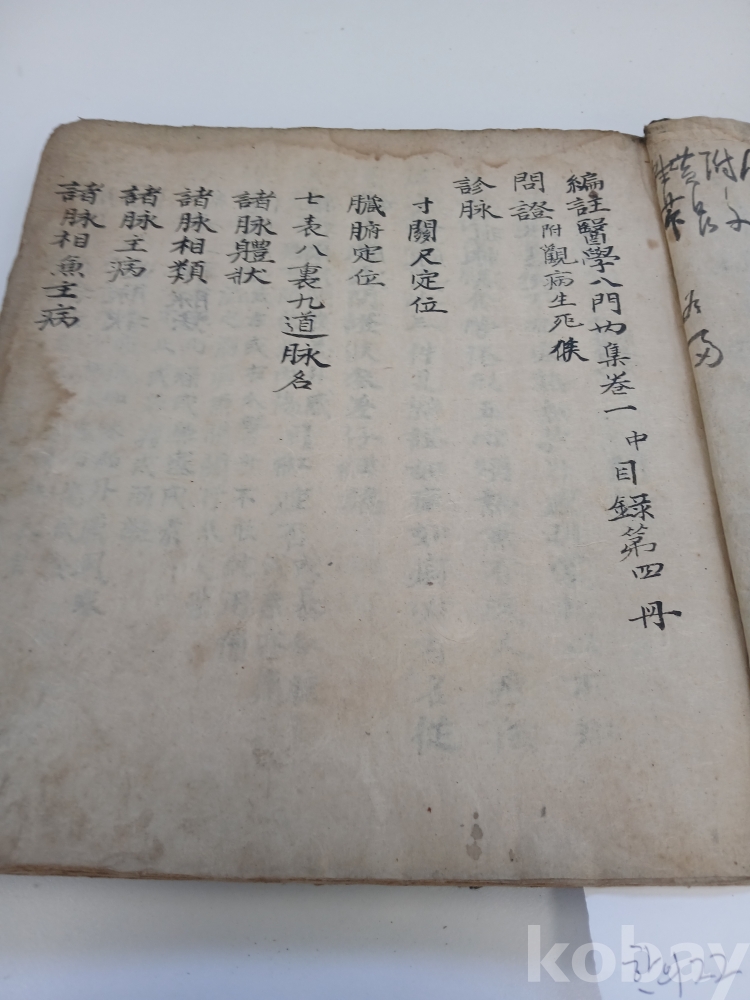 編註醫學入門內集卷一中目錄第四冊
問證附觀病生死候
診脉
寸關尺定位
臟腑定位
七表八裏九道脉名
諸脉體狀
諸脉相類
諸脉主病
諸脉相兼主病
附
kobay